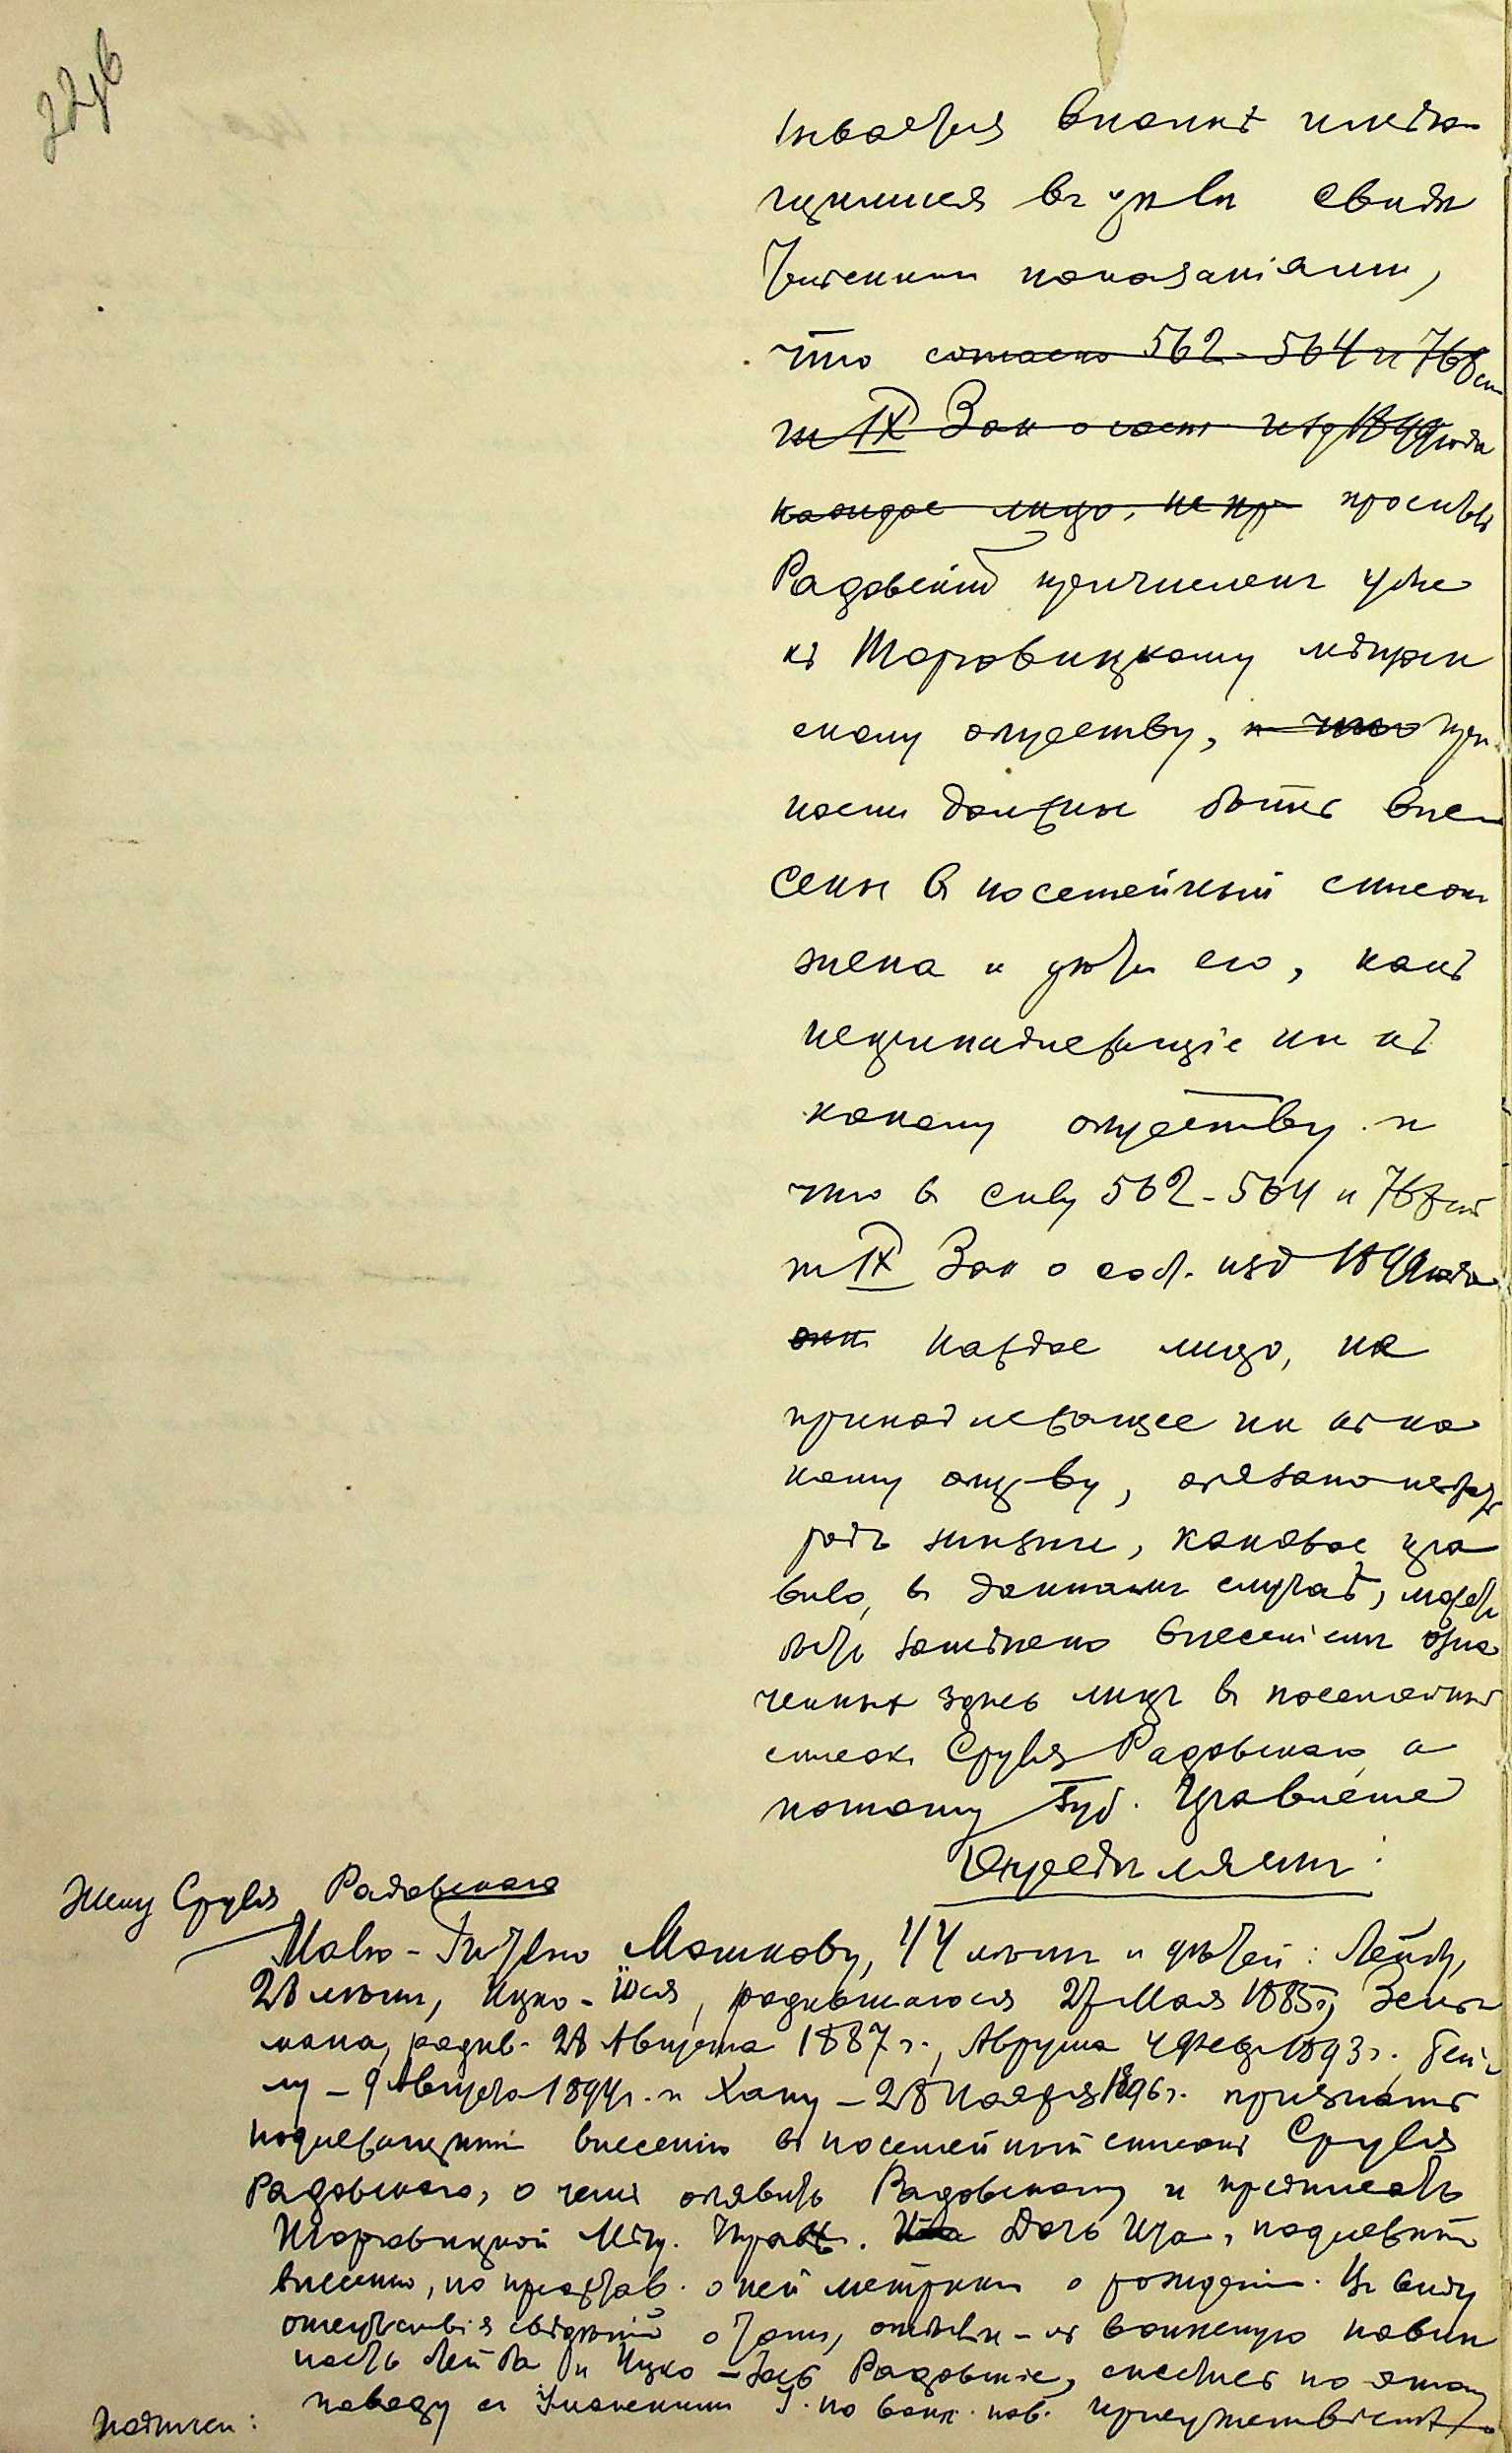 22об
ивается вполнѣ имѣю
щимися въ дѣлѣ свидѣ
тельскими показаніями,
что согласно 562-564 и 768 ст
т IX Зак о сост изд 1899 года
каждое лицо, не пр проситель
Радовскій причисленъ уже
къ Торговицкому мѣщан
скому обществу, и что при
должны быть вне
сены въ посемейный списокъ
жена и дѣти его, какъ
непринадлежащіе ни къ
какому обществу и
что въ силу 562-564 и 768 ст
т IX Зак о сост. изд 1899 года
каждое лицо, не
принадлежащее ни къ ка
кому общ-ву, обязано избр
родъ жизни, каковое пра
вило, въ данномъ случаѣ, можетъ
быть замѣнено внесеніемъ озна
ченныхъ здѣсь лицъ въ посемейный
списокъ Сруля Радовскаго, а
потому Губ. Правленіе
Опредѣляетъ:
Жену Сруля Радовскаго
Малю- Мошкову, 44 лѣтъ и дѣтей: Лейбу,
28 лѣтъ, Ицко-Іося, родившагося 27 Мая 1885 г, Зель
мана, родив. 28 Августа 1887 г., Аврума 4 1893 г. Бей
лу - 9 Августа 1894 г. и Хану - 28 Ноября 1896 г. признать
подлежащими внесенію въ посемейный списокъ Сруля
Радовскаго, о чемъ объявить Радовскому и предписать
Торговицкой Мѣщ. Управѣ. Дочь подлежитъ
внесенію, по представ. о ней метрики о рожденіи. Въ виду
отсутствія свѣдѣній о томъ, отбыли-ли воинскую повин
ность Лейба и Ицко-Іось Радовскіе, снестись по этому
поводу съ Уманскимъ У. по воин. пов. присутствіемъ
Подписи: